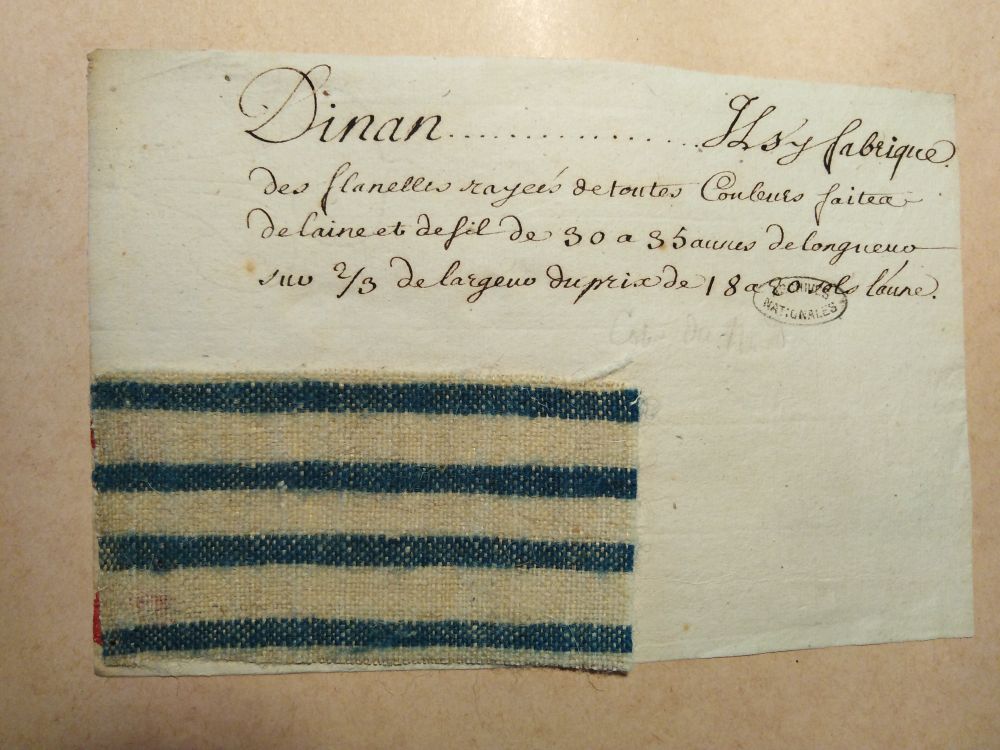 Dinan .................. Il s'y fabrique
des flanelles rayeés de toutes Couleurs faites
de laine et de fil de 30 a 35 aunes de longueur
sur 2/3 de largeur du prix de 18 a 20 sols l'aune.
ARCHIVES
NATIONALES